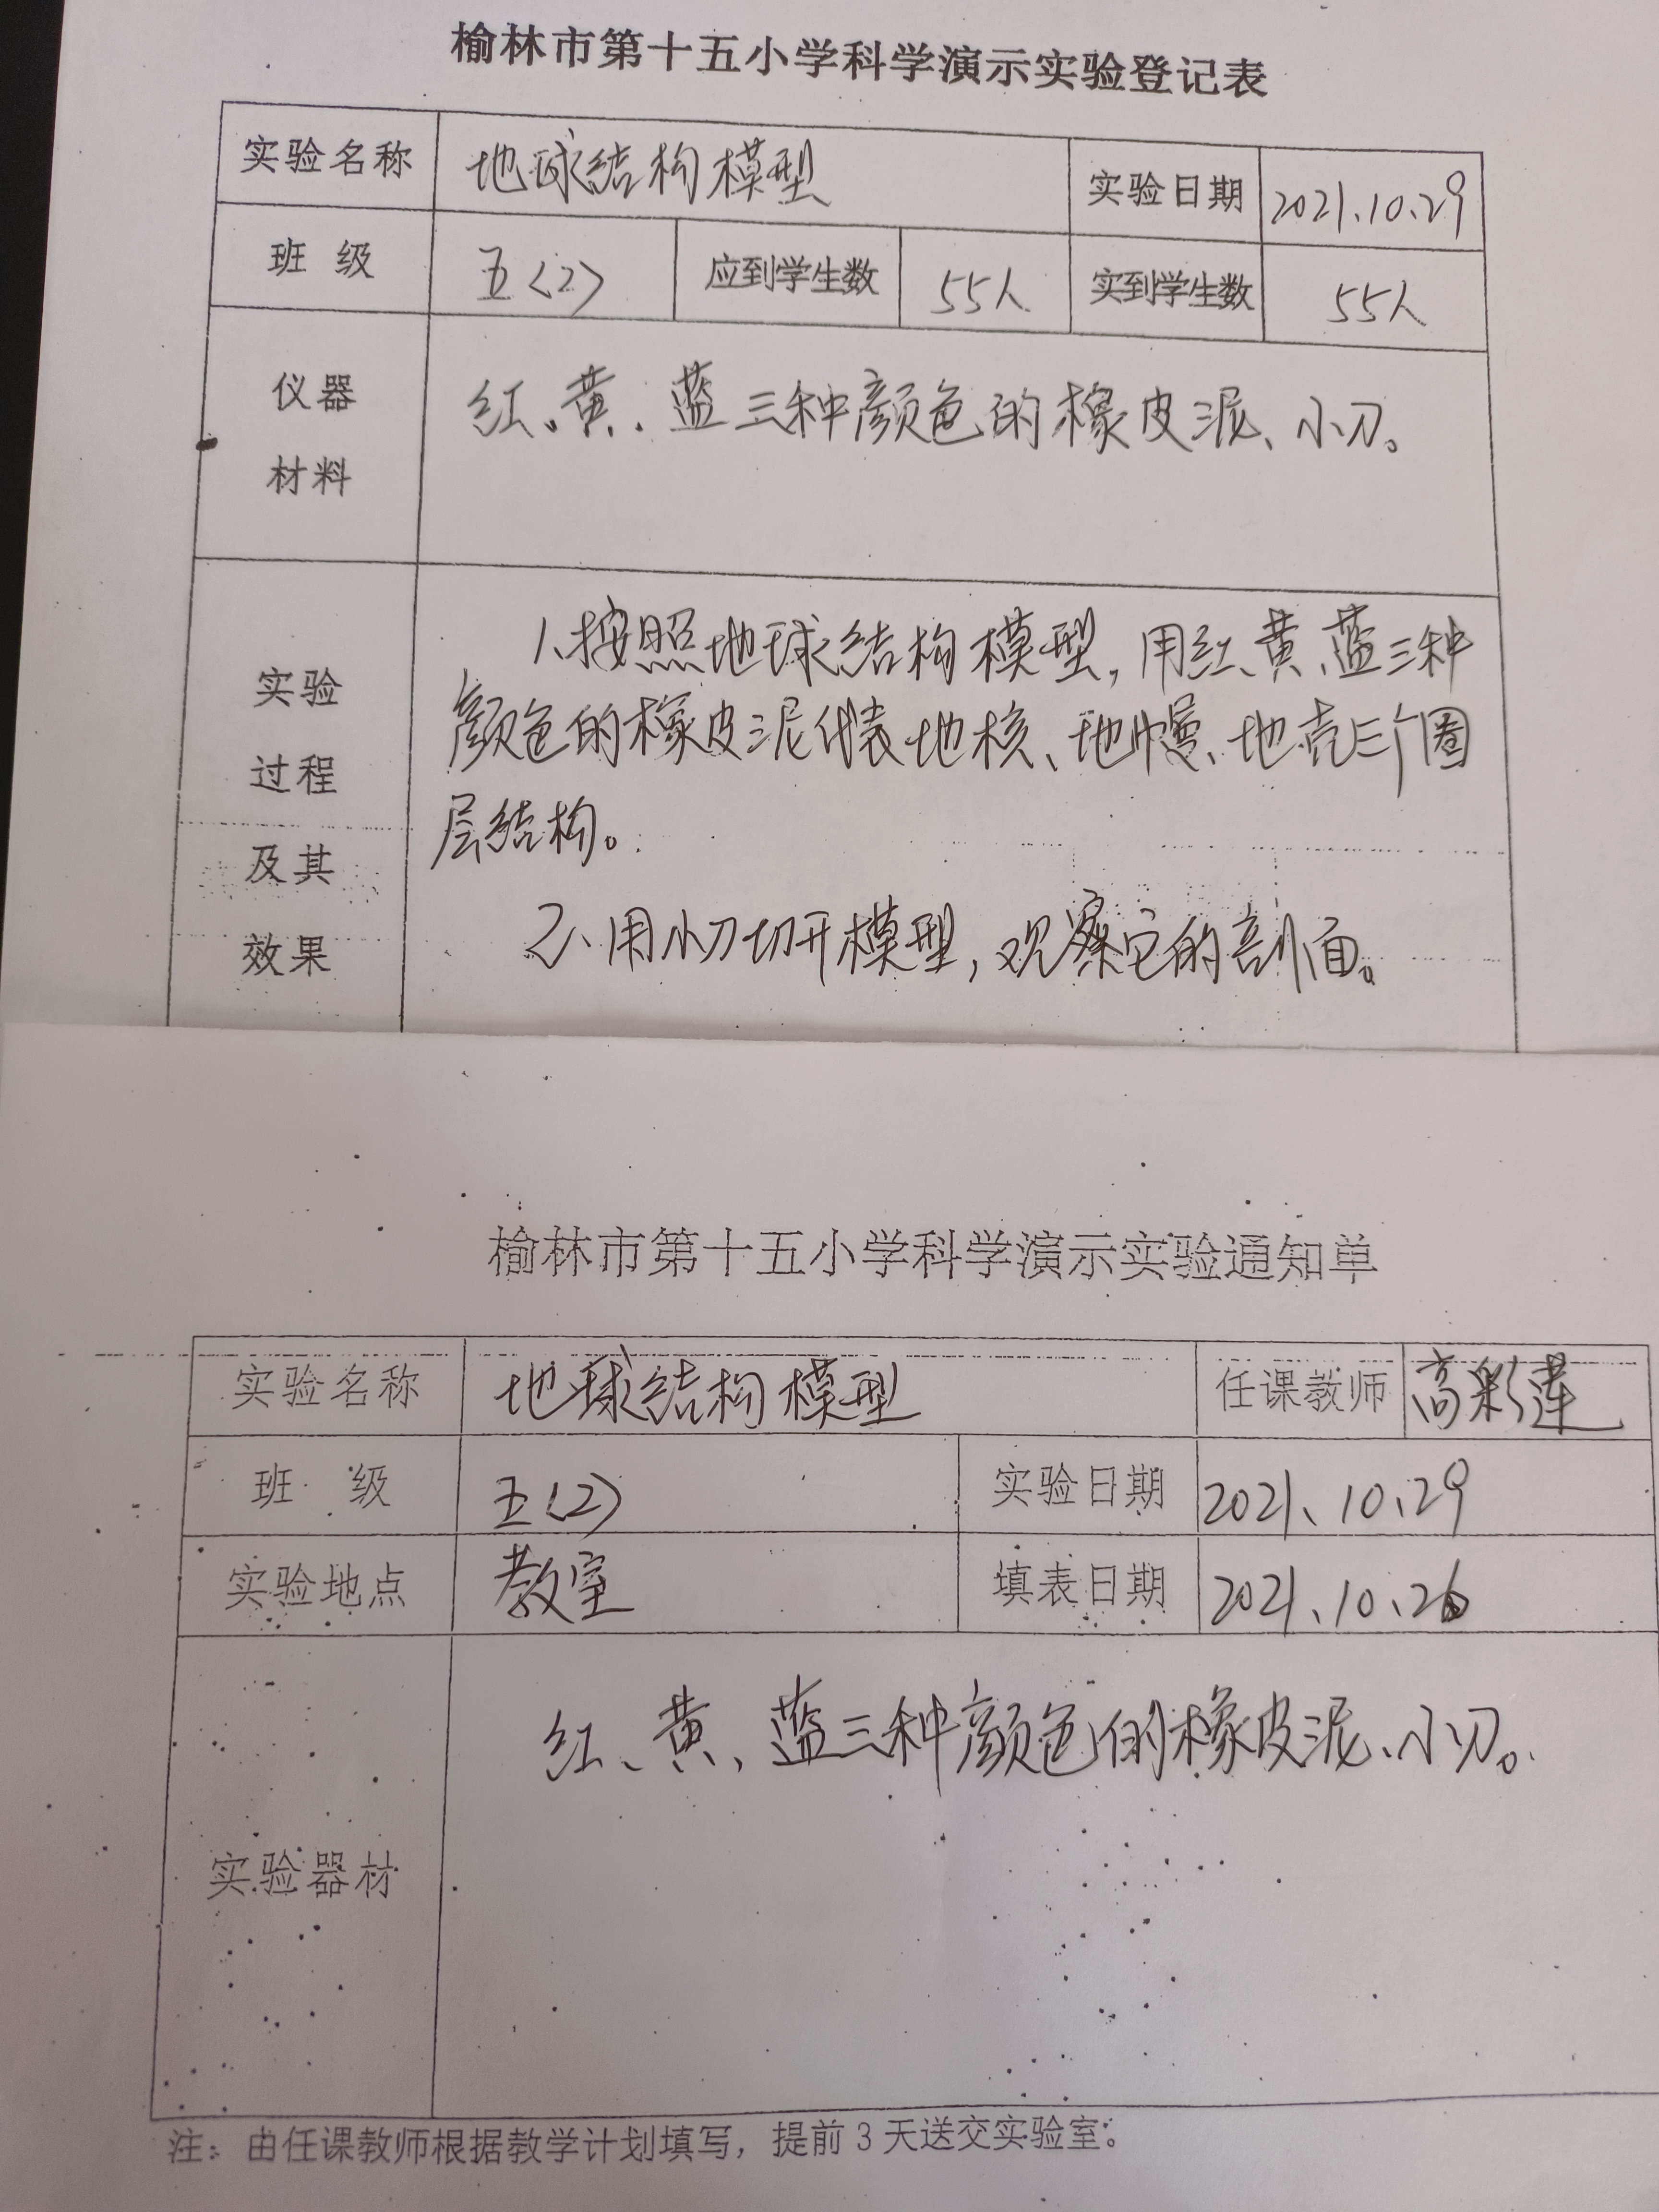 榆林市第十五小学科学演示实验登记表
实验名称 地球结构模型 实验日期 2021.10.29
班 级 五(2) 应到学生数 55人 实到学生数 55人
仪器
材料
红、黄、蓝三种颜色的橡皮泥、小刀。
实验
过程
及其
效果
1、按照地球结构模型,用红、黄、蓝三种
颜色的橡皮泥代表地核、地幔、地壳三个圈
层结构。
2、用小刀切开模型,观察它的剖面。
榆林市第十五小学科学演示实验通知单
实验名称 地球结构模型 任课教师 高彩莲
班 级 五(2) 实验日期 2021、10、29
实验地点 教室 填表日期 2021、10、26
实验器材 红、黄、蓝三种颜色的橡皮泥、小刀。
注:由任课教师根据教学计划填写,提前3天送交实验室。